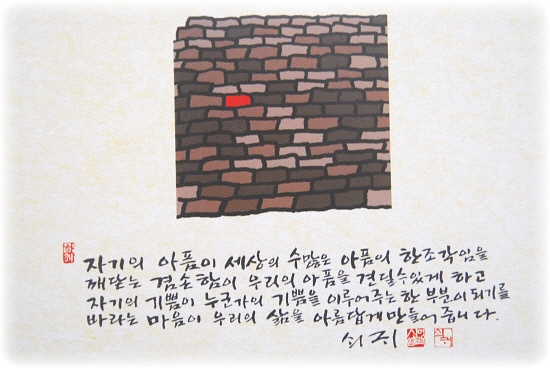 자기의 아픔이 세상의 수많은 아픔의 한조각임을
깨닫는 겸손함이 우리의 아픔을 견딜수있게 하고
자기의 기쁨이 누군가의 기쁨을 이루어주는 한 부분이 되기를
바라는 마음이 우리의 삶을 아름답게 만들어 줍니다.